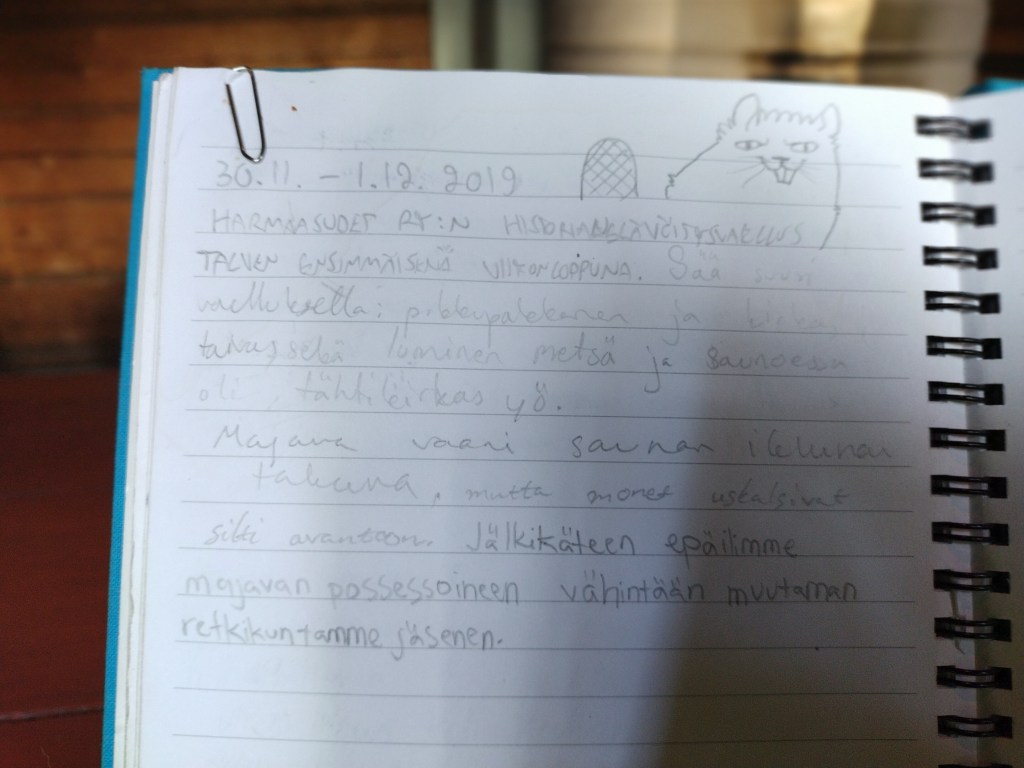 30.11. - 1.12. 2019
HARMAASUDET RY:N
TALVEN ENSIMMÄISENÄ VIIKONLOPPUNA. Sää
vaelluksella: pikkupakkanen ja
taivas sekä luminen metsä ja saunoessa
oli tähtikirkas yö.
Majava vaani saunan ikkunan
takana, mutta monet uskalsivat
silti avantoon. Jälkikäteen epäilimme
majavan possessoineen vähintään muutaman
retkikuntamme jäsenen.